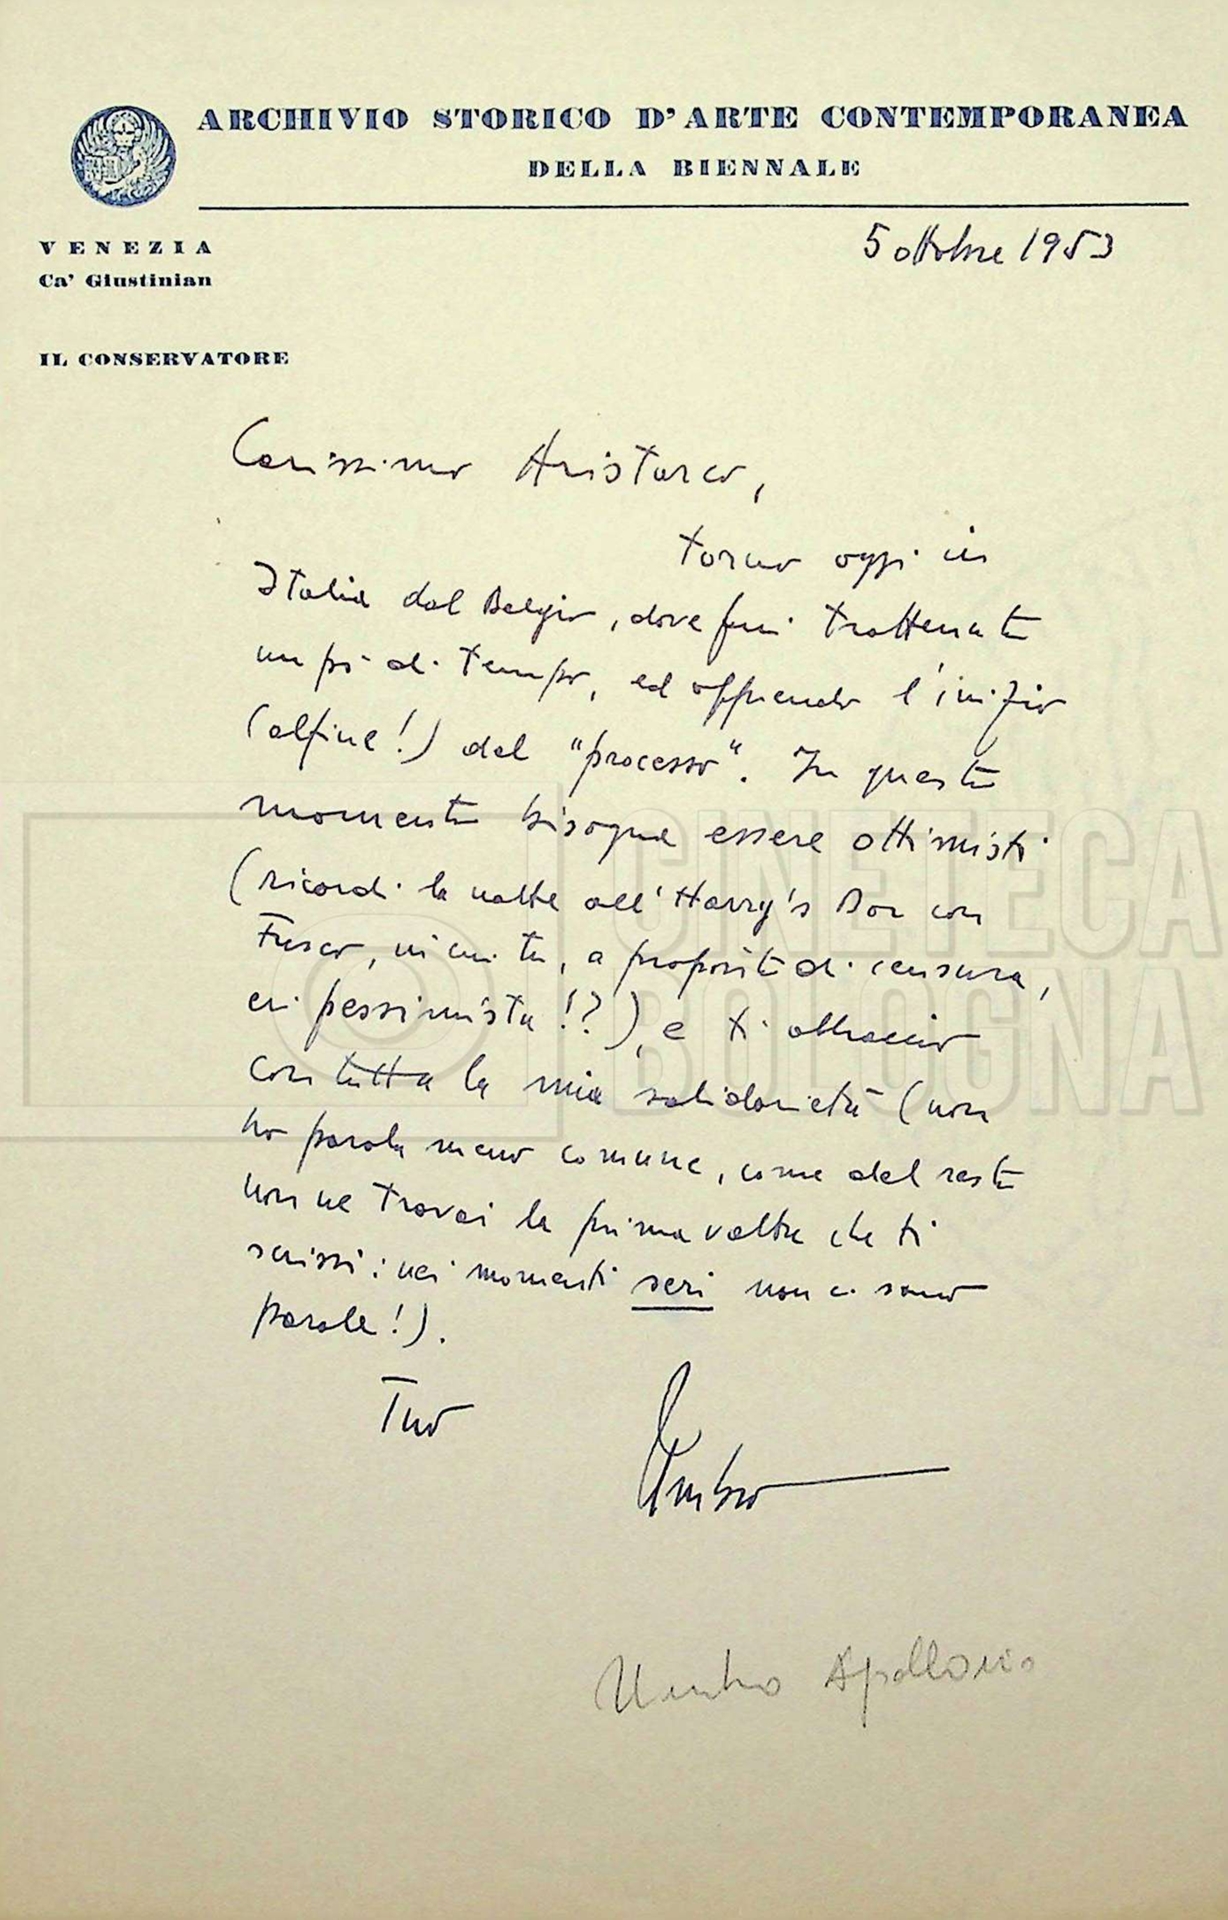 ARCHIVIO STORICO D'ARTE CONTEMPORANEA
DELLA BIENNALE
VENEZIA
Ca' Giustinian
IL CONSERVATORE
5 ottobre 1953
Carissimo Aristarco,
torno oggi in
Italia dal Belgio, dove fui trattenuto
un po' di tempo, ed apprendo l'inizio
(alfine!) del "processo". In questo
momento bisogna essere ottimisti
(ricordi la notte all'Harry's Bar con
Fusco, in cui tu, a proposito di censura,
eri pessimista!?), e ti abbraccio
con tutta la mia solidarietà (non
ho parola meno comune, come del resto
non ne trovai la prima volta che ti
scrissi: nei momenti seri non ci sono
parole!).
Tuo
Umbro
Umbro Apollonio
CINETECA
BOLOGNA